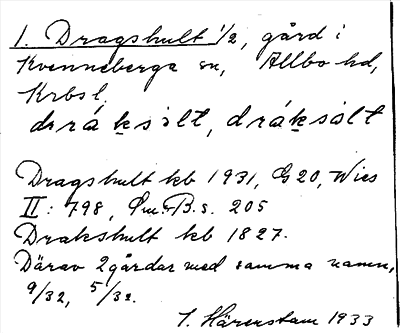 1. Dragshult 1/2, gård i
Kvenneberga sn, Allbo hd,
Krbs l.
drák̲sɔlt, drák̲sålt
Dragshult kb 1931, G20, Wies
II: 798, Öm:B.s. 205
Drakshult kb 1827.
Därav 2 gårdar med samma namn,
9/32, 5/32.
J. Härenstam 1933